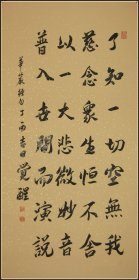 了知一切空無我
慈念衆生恒不舍
以一大悲微妙音
普入世間而演說
華嚴經句丁酉春日覺醒